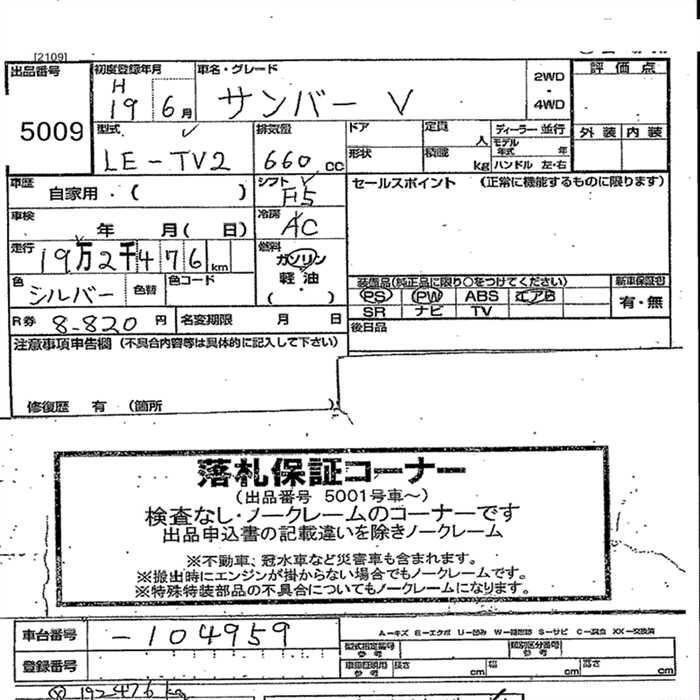 [2109]
出品番号 初度登録年月 車名・グレード 評価点
5009 H 19 6月 サンバー V 2WD・4WD
外装 内装
型式 排気量 ドア 定員 人 ディーラー 並行
LE-TV2 660cc 形状 積載 kg モデル年式 年 ハンドル 左・右
車歴 自家用・( ) シフト F5 セールスポイント (正常に機能するものに限ります)
車検 年 月( 日) 冷房 AC
走行 19万2千476km 燃料 ガソリン 軽油 ( )
色 シルバー 色替 色コード
装備品(純正品に限り○をつけてください) 新車保証書
PS PW ABS エアB 有・無
SR ナビ TV
R券 8-820円 名変期限 月 日 後日品
注意事項申告欄 (不具合内容等は具体的に記入して下さい)
修復歴 有 (箇所 )
落札保証コーナー
(出品番号 5001号車~)
検査なし・ノークレームのコーナーです
出品申込書の記載違いを除きノークレーム
※不動車、冠水車など災害車も含まれます。
※搬出時にエンジンが掛からない場合でもノークレームです。
※特殊特装部品の不具合についてもノークレームになります。
A-キズ E-エクボ U-凹み W-補修跡 S-サビ C-腐食 XX-交換済
車台番号 -104959 型式指定番号 参考 類別区分番号 参考
登録番号 車庫証明用 参考 長さ cm 幅 cm 高さ cm
192476km